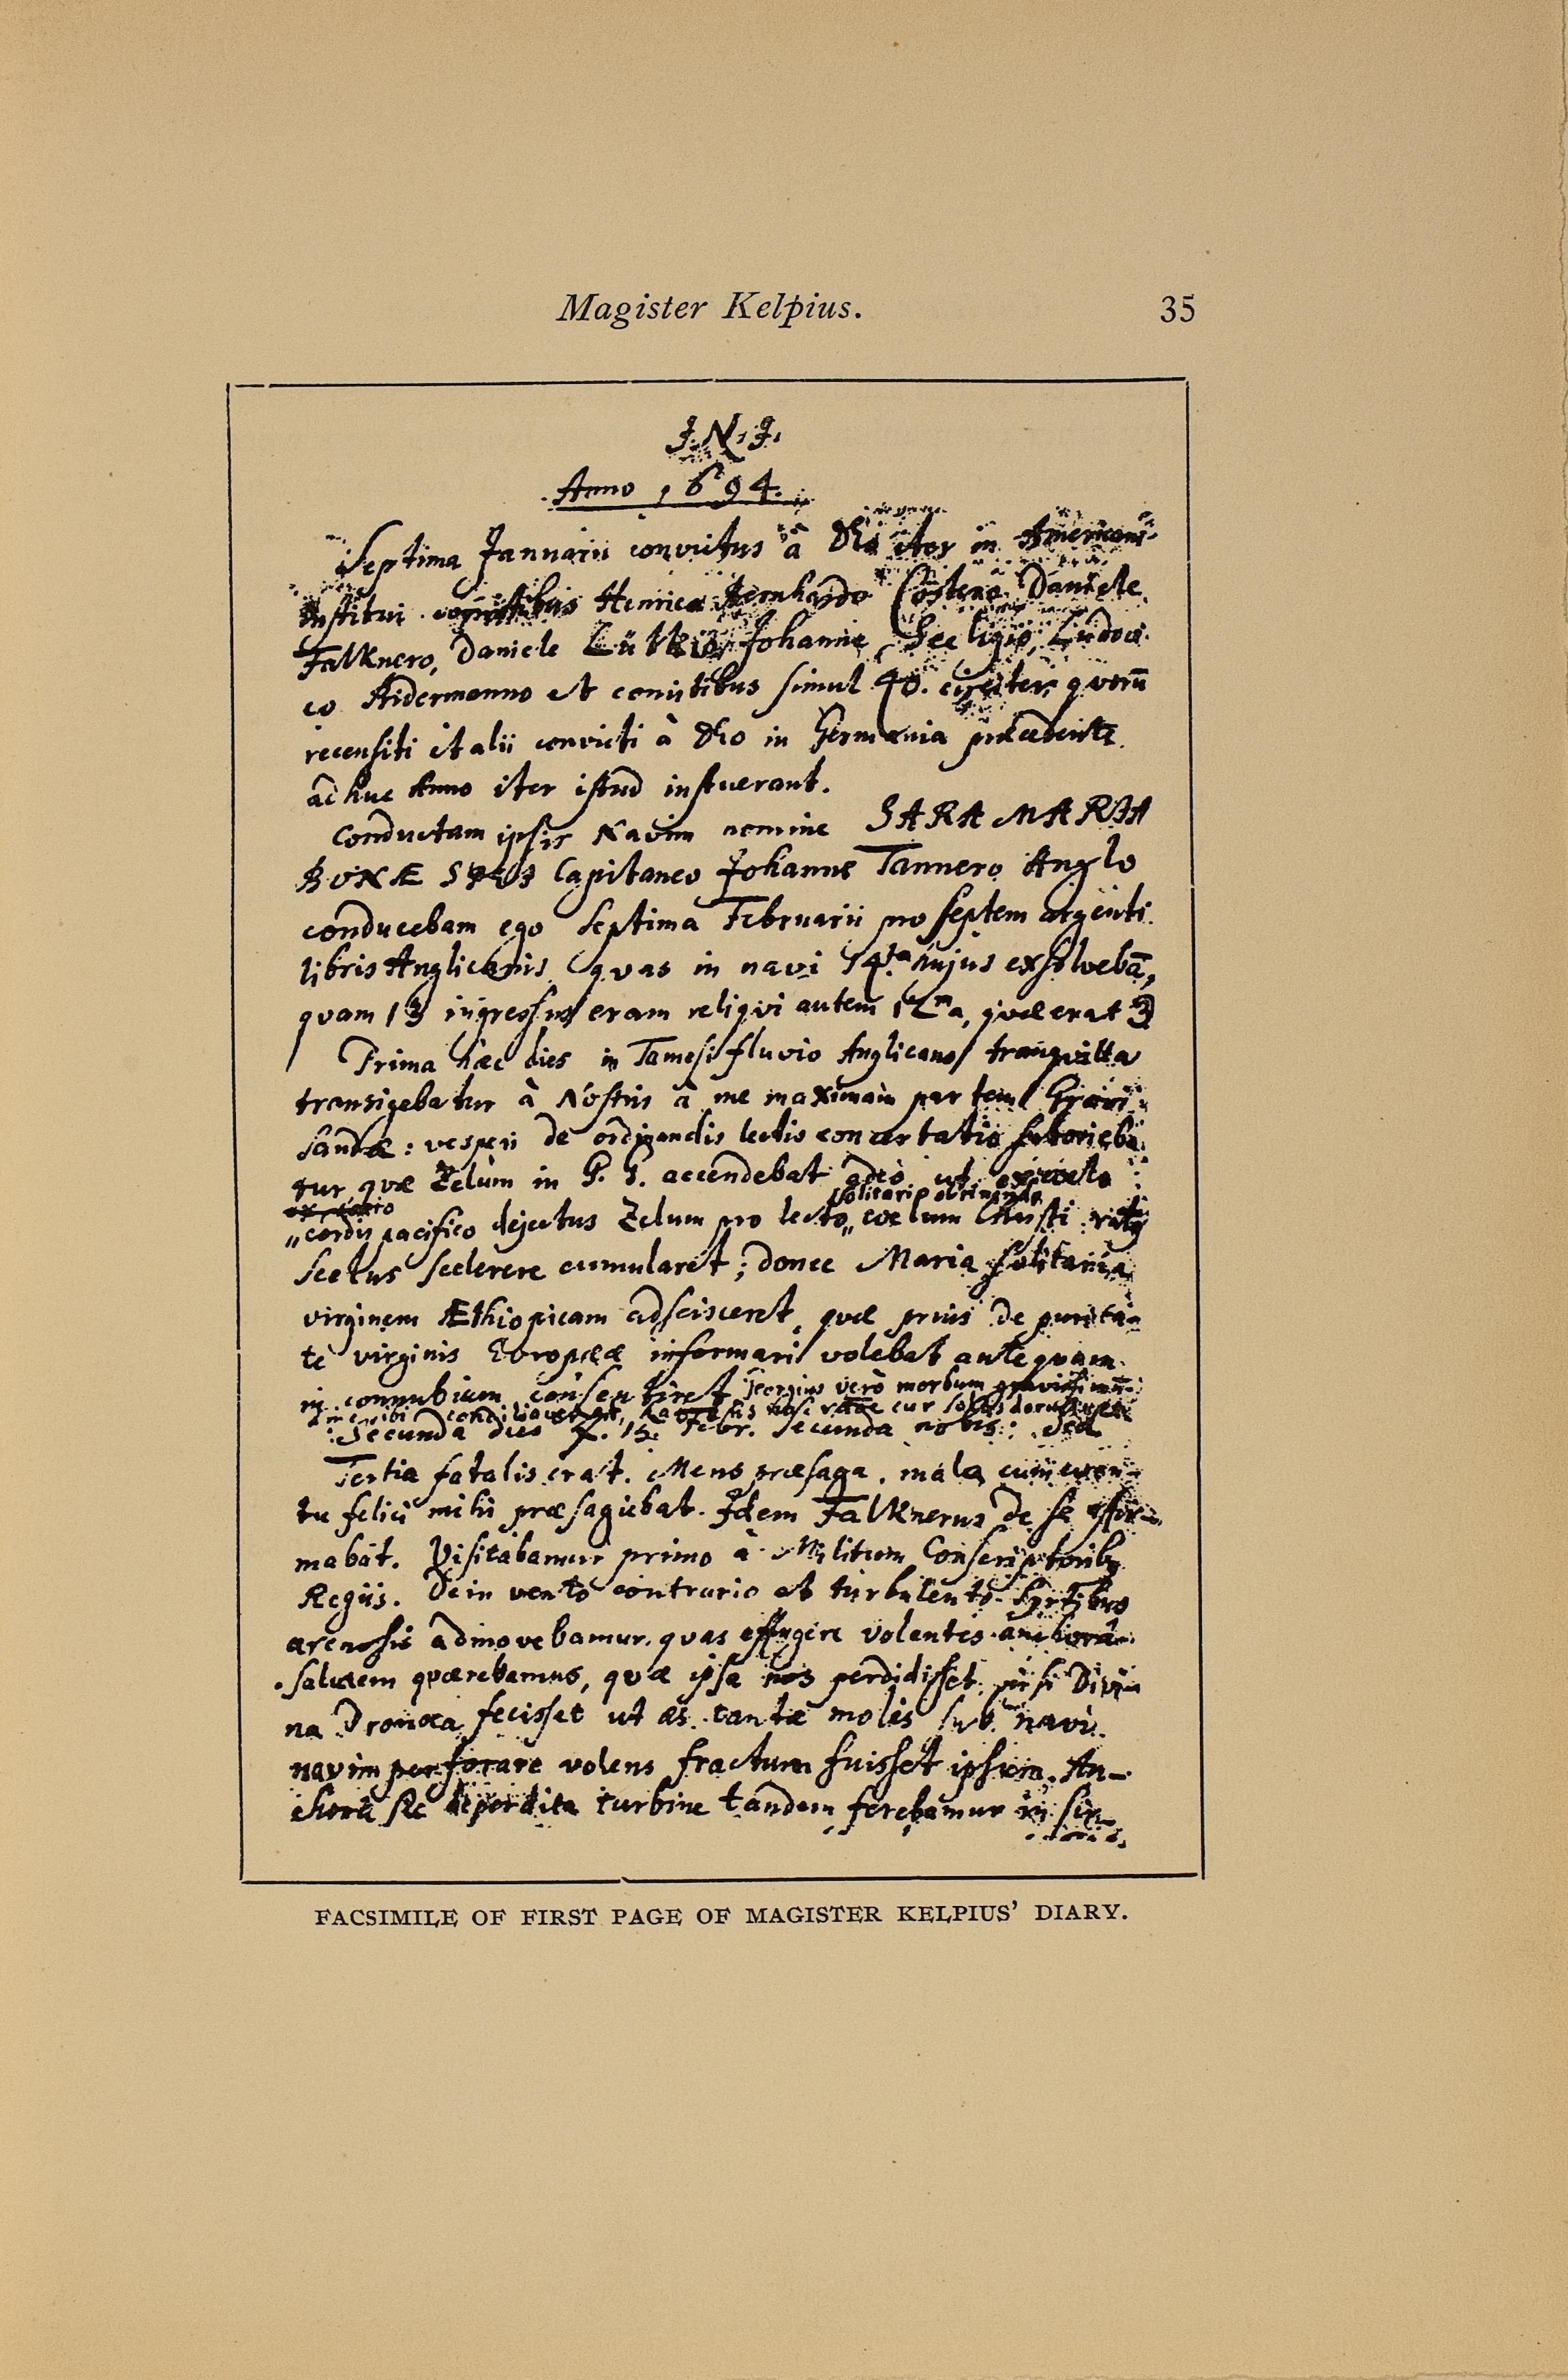 Magister Kelpius.
35
J. N. J.
Anno 1694.
Septima Januarii convictus à Deo iter in American
institui comitibus Henrico Bernhardo Cöstero Daniele
Falknero, Daniele Lütkio, Johanne Seeligio, Ludovi-
co Bidermanno et comitibus simul 40. circiter, qvorū
recensiti et alii convicti à Deo in Germania præcedente
adhuc Anno iter istud instituerant.
Conductam ipsis Navim nomine SARA MARIA
BONÆ SPEI Capitaneo Johanne Tannero Anglo
conducebam ego Septima Februarii pro septem argenti
libris Anglicanis, qvas in navi 14ta hujus exsolvebā,
quam 13 ingressus eram reliqvi autem 12ma, qvæ erat
Prima hæc dies in Tamesi fluvio Anglicano tranqvilla
transigebatur à Nostris à me maximam partem Gravi-
sandæ: vesperi de ordinandis lectis concertatio
tur qvæ Zelum in G. S. accendebat adeò ut
solitario obtinendo
cordis pacifico dejectus Zelum pro lecto
Scelus scelere cumularet; donec Maria solitaria
virginem Æthiopicam adscisceret, qvæ prius de purita-
te virginis Evropææ informari volebat anteqvam
in connubium consentiret. Georgius verò morbum gravissimū
Secunda dies 15. Febr. secunda nobis: sed
Tertia fatalis erat. Mens præsaga mala cum even-
tu felici mihi præsagiebat. Idem Falknerus de se affir-
mabat. Visitabamur primo à Militum Conscriptoribꝫ
Regiis. Dein vento contrario et turbulento Syrtibus
arenosis admovebamur, quas effugere volentes anchorâ
salutem qværebamus, qvæ ipsa nos perdidisset nisi Divi-
na Pronœa fecisset ut æs tantæ molis sub navi
navim perforare volens fractum fuisset ipsum. An-
chorâ sic deperdita turbine tandem ferebamur in
FACSIMILE OF FIRST PAGE OF MAGISTER KELPIUS' DIARY.